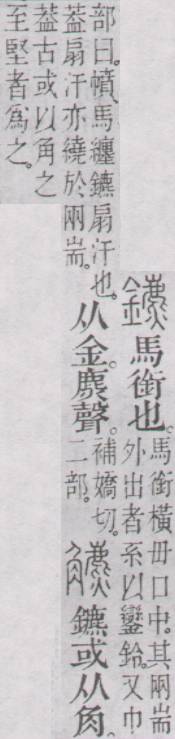 鑣馬銜也。馬銜橫毌口中。其兩耑
外出者系以鑾鈴。又巾
部曰。幩、馬纏鑣扇汗也。
葢扇汗亦繞於兩耑。
从金。麃聲。補嬌切。
二部。
䚩鑣或从角。
葢古或以角之
至堅者爲之。